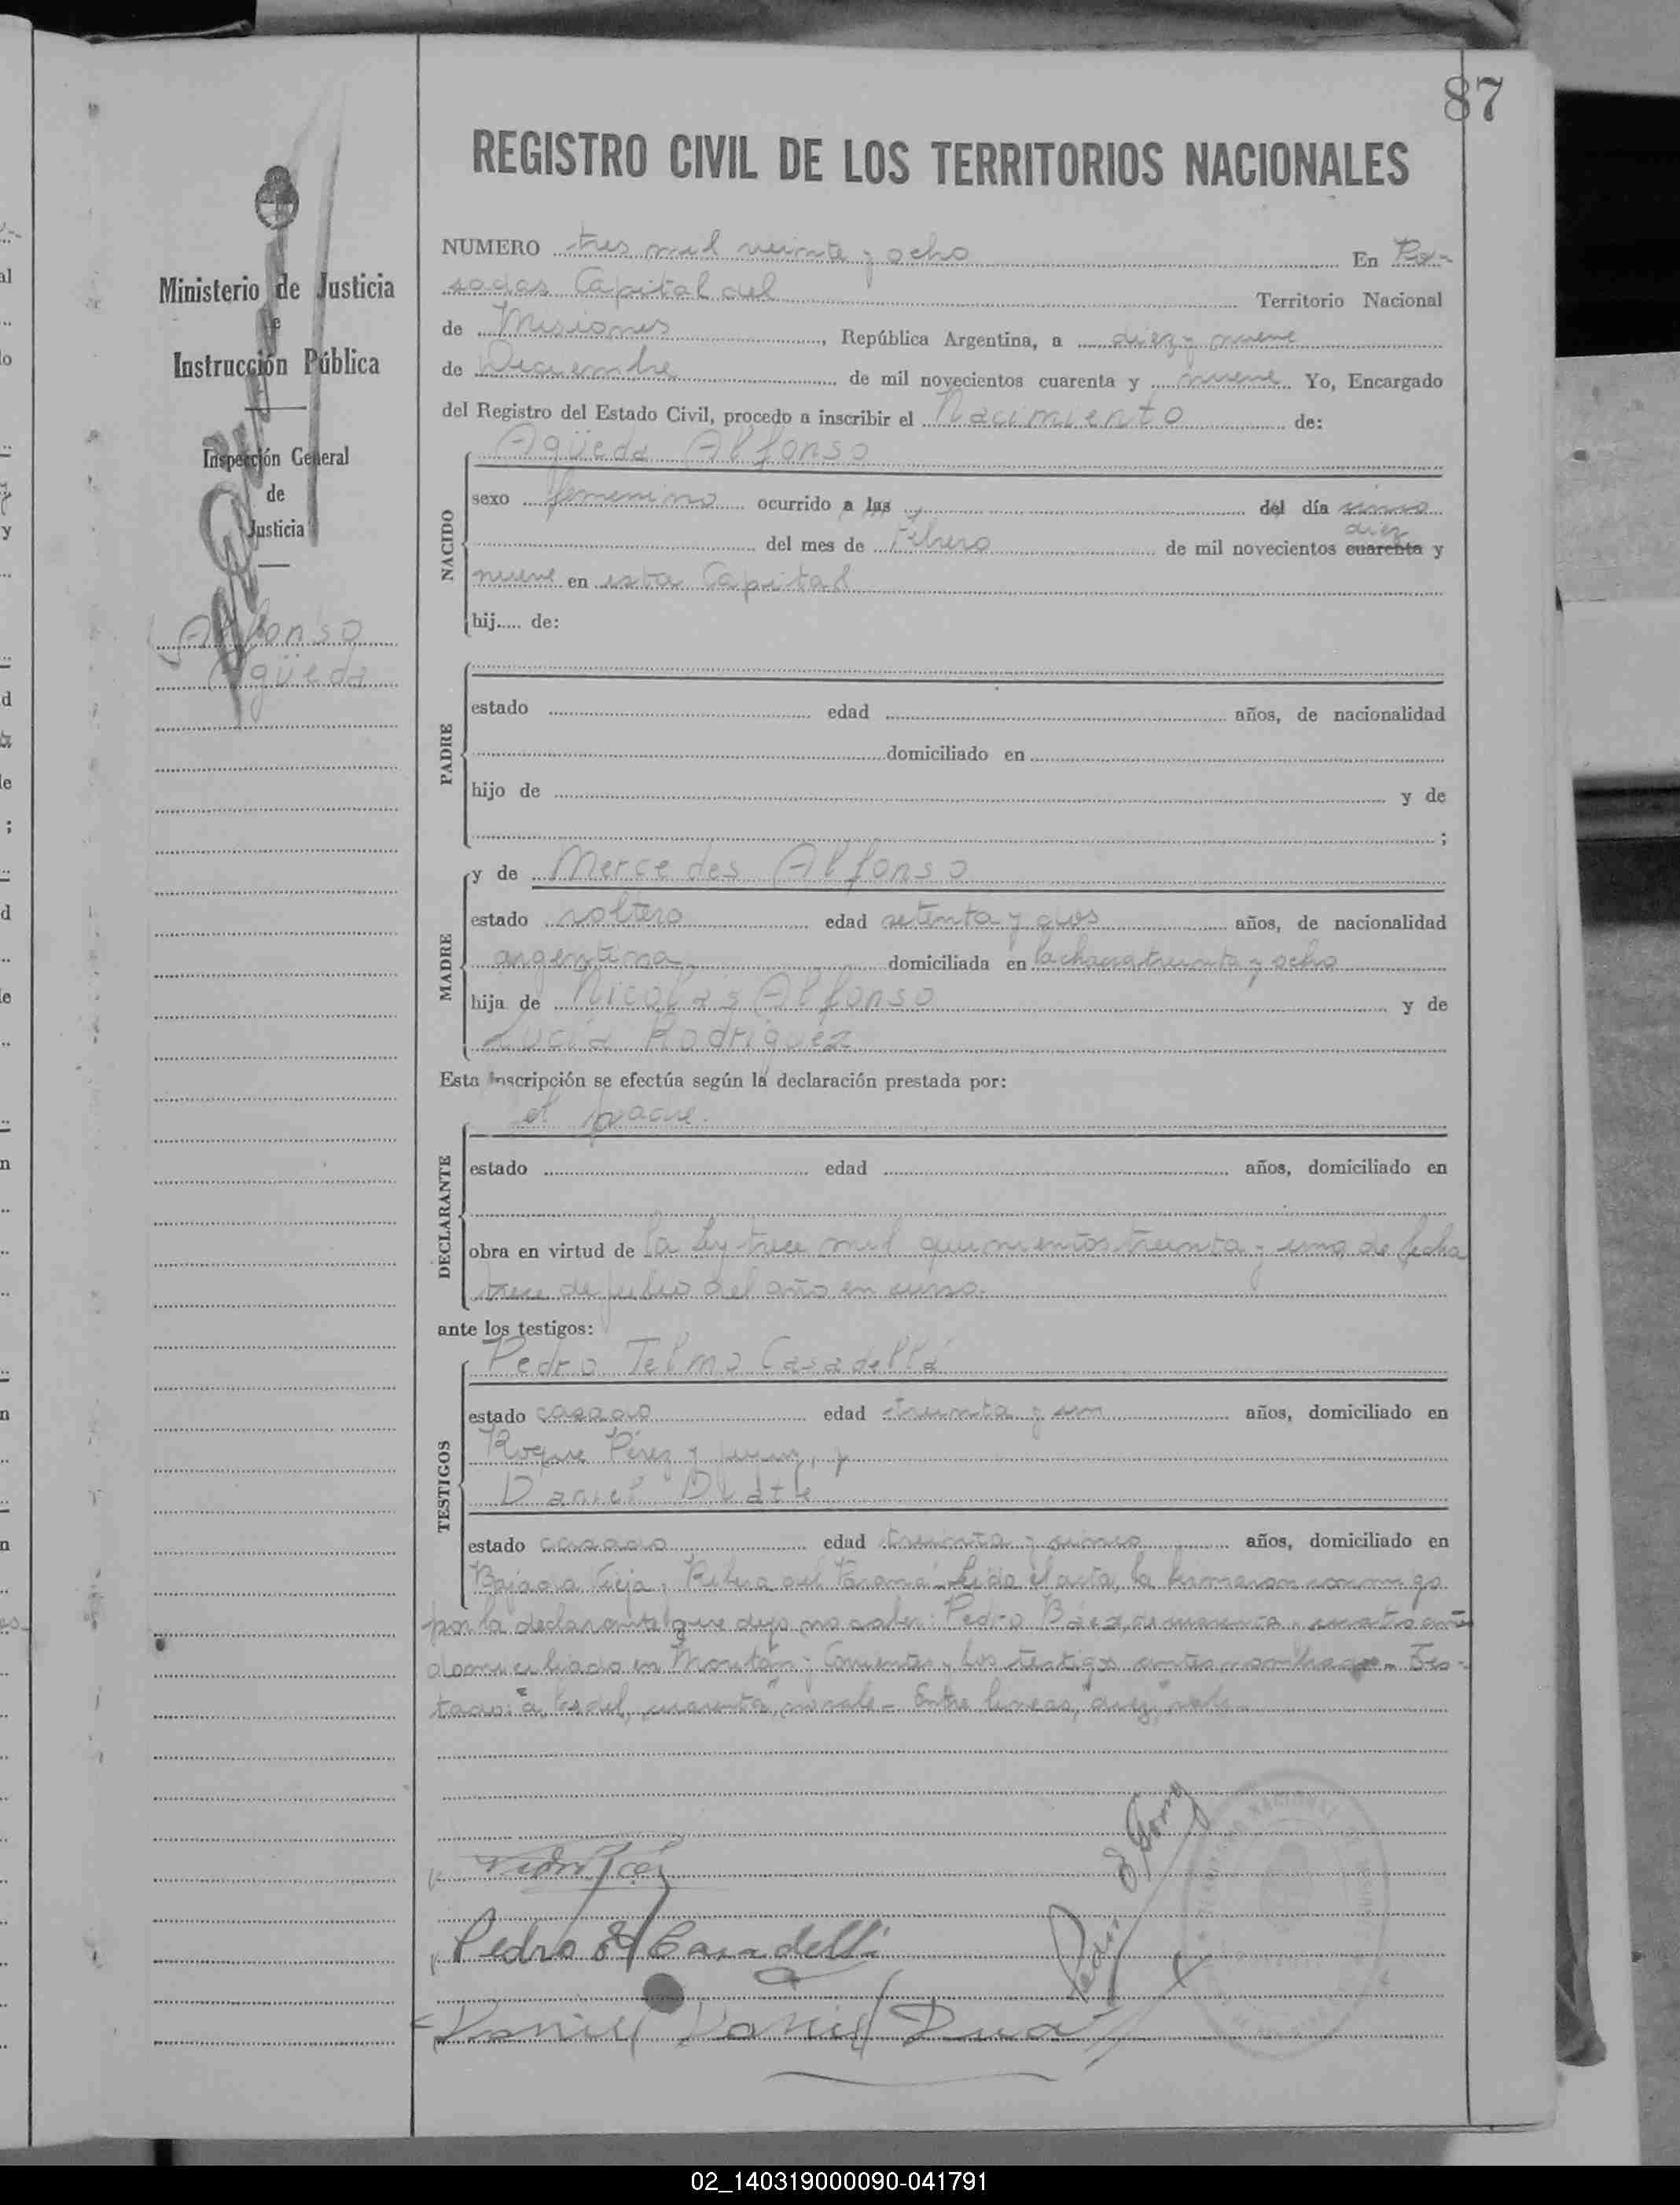 87
REGISTRO CIVIL DE LOS TERRITORIOS NACIONALES
Ministerio de Justicia
e
Instrucción Pública
Inspección General
de
Justicia
Alfonso
Agüeda
NUMERO tres mil veinte y ocho En Po-
sadas Capital del Territorio Nacional
de Misiones, República Argentina, a diez y nueve
de Diciembre de mil novecientos cuarenta y nueve Yo, Encargado
del Registro del Estado Civil, procedo a inscribir el Nacimiento de:
Agüeda Alfonso
NACIDO
sexo femenino ocurrido a las del día cinco
diez
del mes de Febrero de mil novecientos cuarenta y
nueve en esta Capital
hij..... de:
PADRE
estado edad años, de nacionalidad
domiciliado en
hijo de y de
;
MADRE
y de Mercedes Alfonso
estado soltera edad setenta y dos años, de nacionalidad
argentina domiciliada en la chacra treinta y ocho
hija de Nicolás Alfonso y de
Lucía Rodríguez
Esta inscripción se efectúa según la declaración prestada por:
DECLARANTE
estado edad años, domiciliado en
obra en virtud de la Ley trece mil quinientos treinta y uno de fecha
trece de julio del año en curso.
ante los testigos:
TESTIGOS
Pedro Telmo Casadellá
estado casado edad treinta y un años, domiciliado en
Roque Pérez y
Daniel
estado casado edad treinta y cinco años, domiciliado en
Bajada Vieja y Ribera del Paraná. Leida el acta, la firmaron conmigo
por la declarante que dijo no saber: Pedro Báez, de y cuatro años
domiciliado en y Corrientes y los testigos antes nombrados. Tes-
tado: "a las del, cuarenta", no vale - Entre lineas, "diez", vale.
02_140319000090-041791